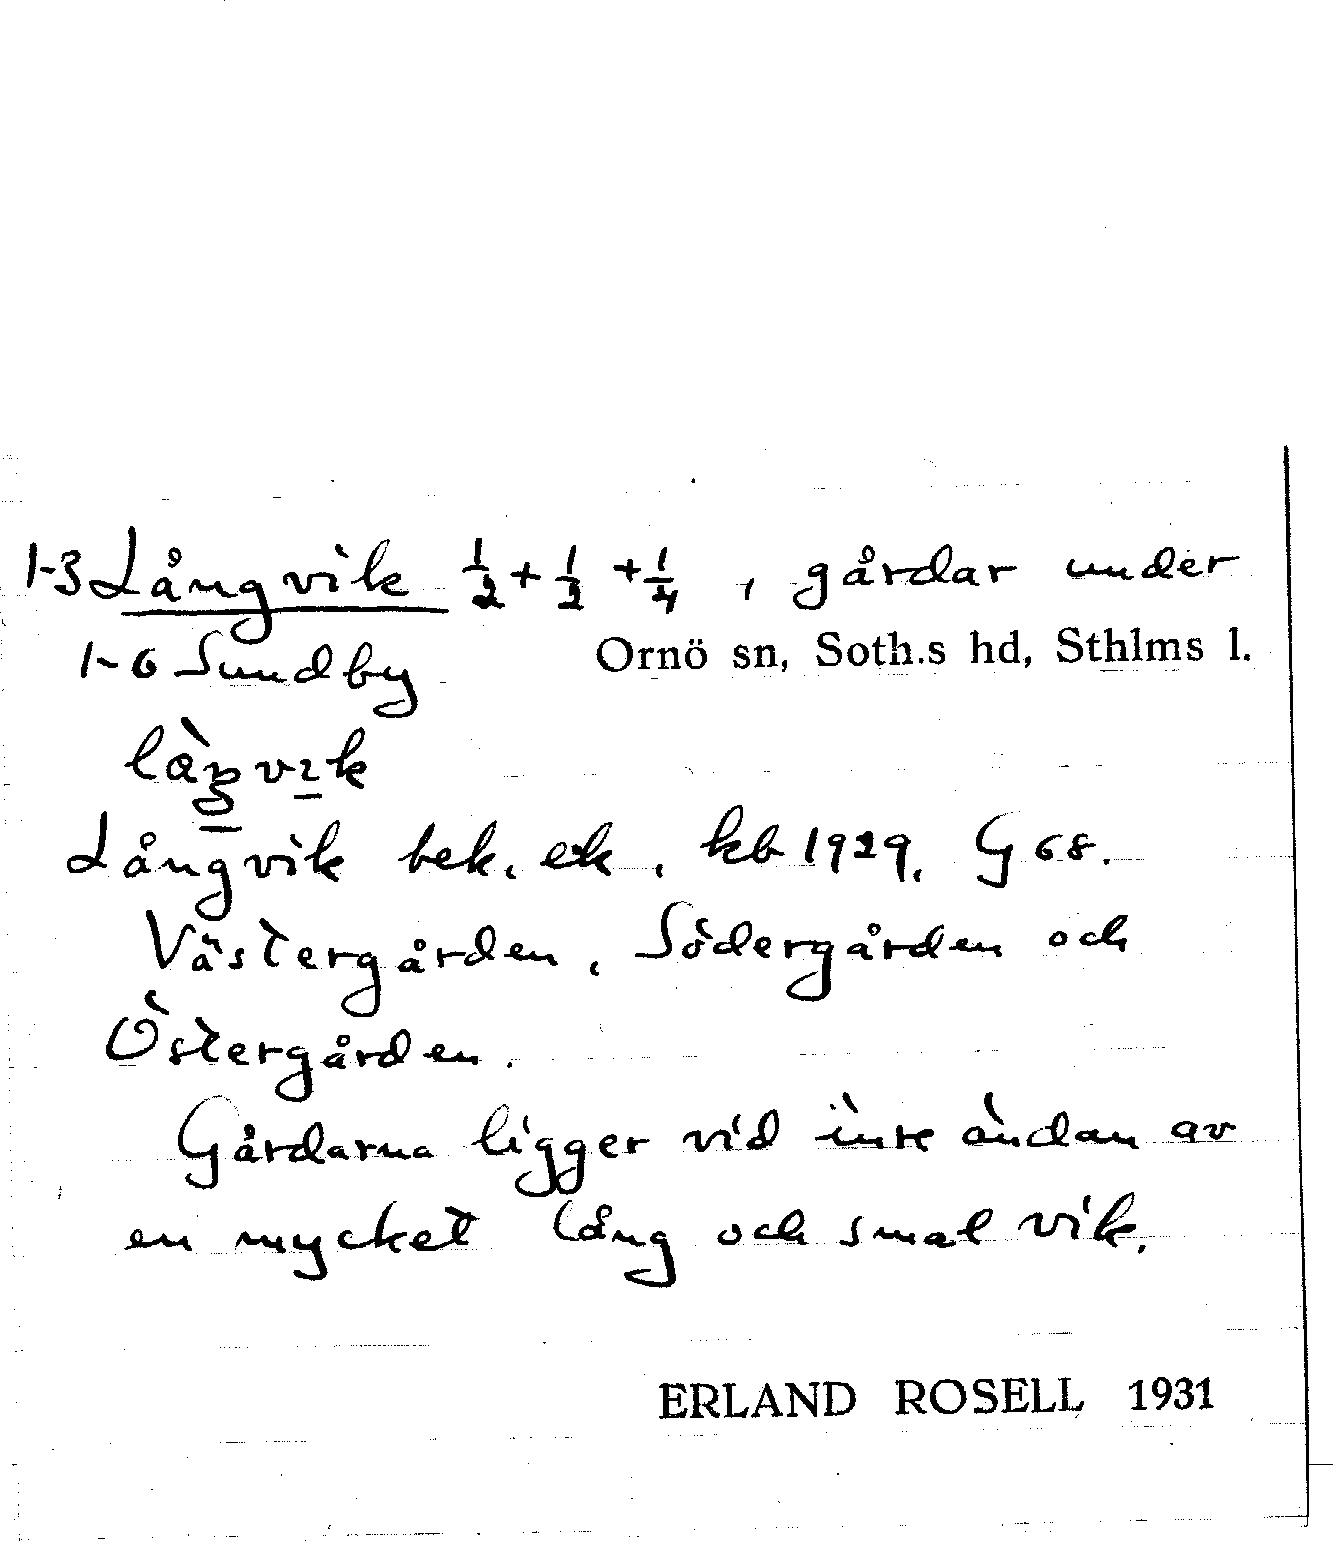 1-3 Långvik 1/2 + 1/2 + 1/4, gårdar under
1-6 Sundby Ornö sn, Soth.s hd, Sthlms l.
Långvik bek. ek., kb 1929. G 68.
Västergården, Södergården och
Östergården.
Gårdarna ligger vid inre ändan av
en mycket lång och smal vik.
ERLAND ROSELL 1931